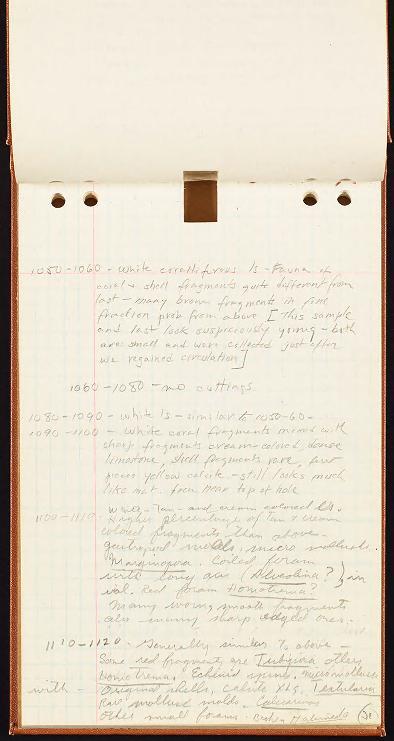 1050-1060 - white coralliferous ls - Fauna of
coral & shell fragments quite different from
last - many brown fragments in fine
fraction prob from above [This sample
and last look suspiciously young - both
are small and were collected just after
we regained circulation]
1060-1080 - no cuttings
1080-1090 - white ls - similar to 1050-60 -
1090-1100 - White coral fragments mixed with
sharp fragments cream-colored, dense
limestone, shell fragments rare, few
pieces yellow calcite - still looks much
like mat. from near top of hole
1100-1110 - White - Tan - and cream colored ls.
Higher percentage of Tan & cream
colored fragments than above -
gastropod molds, micro mollusks.
Marginopora. Coiled foram
with long axis (Alveolina?) in
val. Red foram Homotrema?
Many worn, smooth fragments
also many sharp edged ones.
1110-1120 - Generally similar To above -
Some red fragments are Tubipora others
Homotrema. Echinid spines, micromollusks
with - Original shells, calcite xls, Textularia
Rare mollusk molds.
other small forams. Halimeda